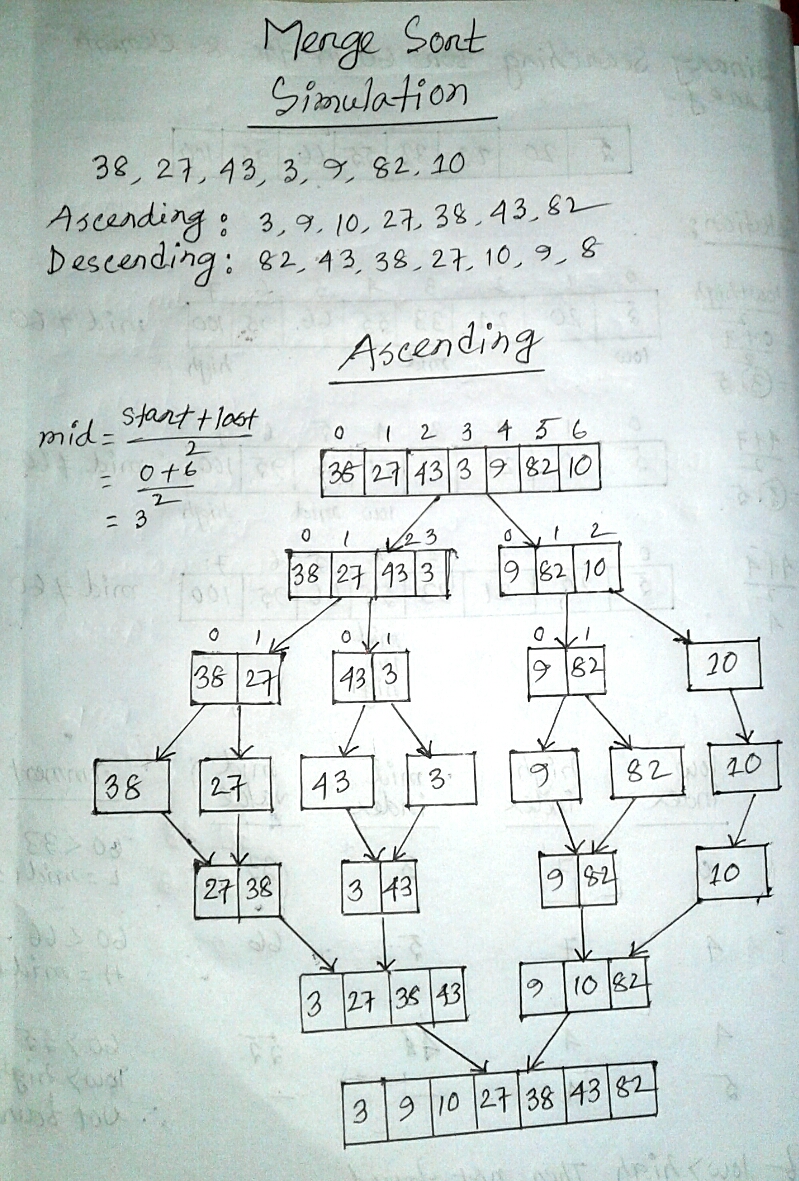 Merge Sort
Simulation
38, 27, 43, 3, 9, 82, 10
Ascending: 3, 9, 10, 27, 38, 43, 82
Descending: 82, 43, 38, 27, 10, 9, 8
Ascending
mid = start + last / 2
= 0 + 6 / 2
= 3
0 1 2 3 4 5 6
38 27 43 3 9 82 10
0 1 2 3 0 1 2
38 27 43 3 9 82 10
0 1 0 1 0 1
38 27 43 3 9 82 10
38 27 43 3 9 82 10
27 38 3 43 9 82 10
3 27 38 43 9 10 82
3 9 10 27 38 43 82